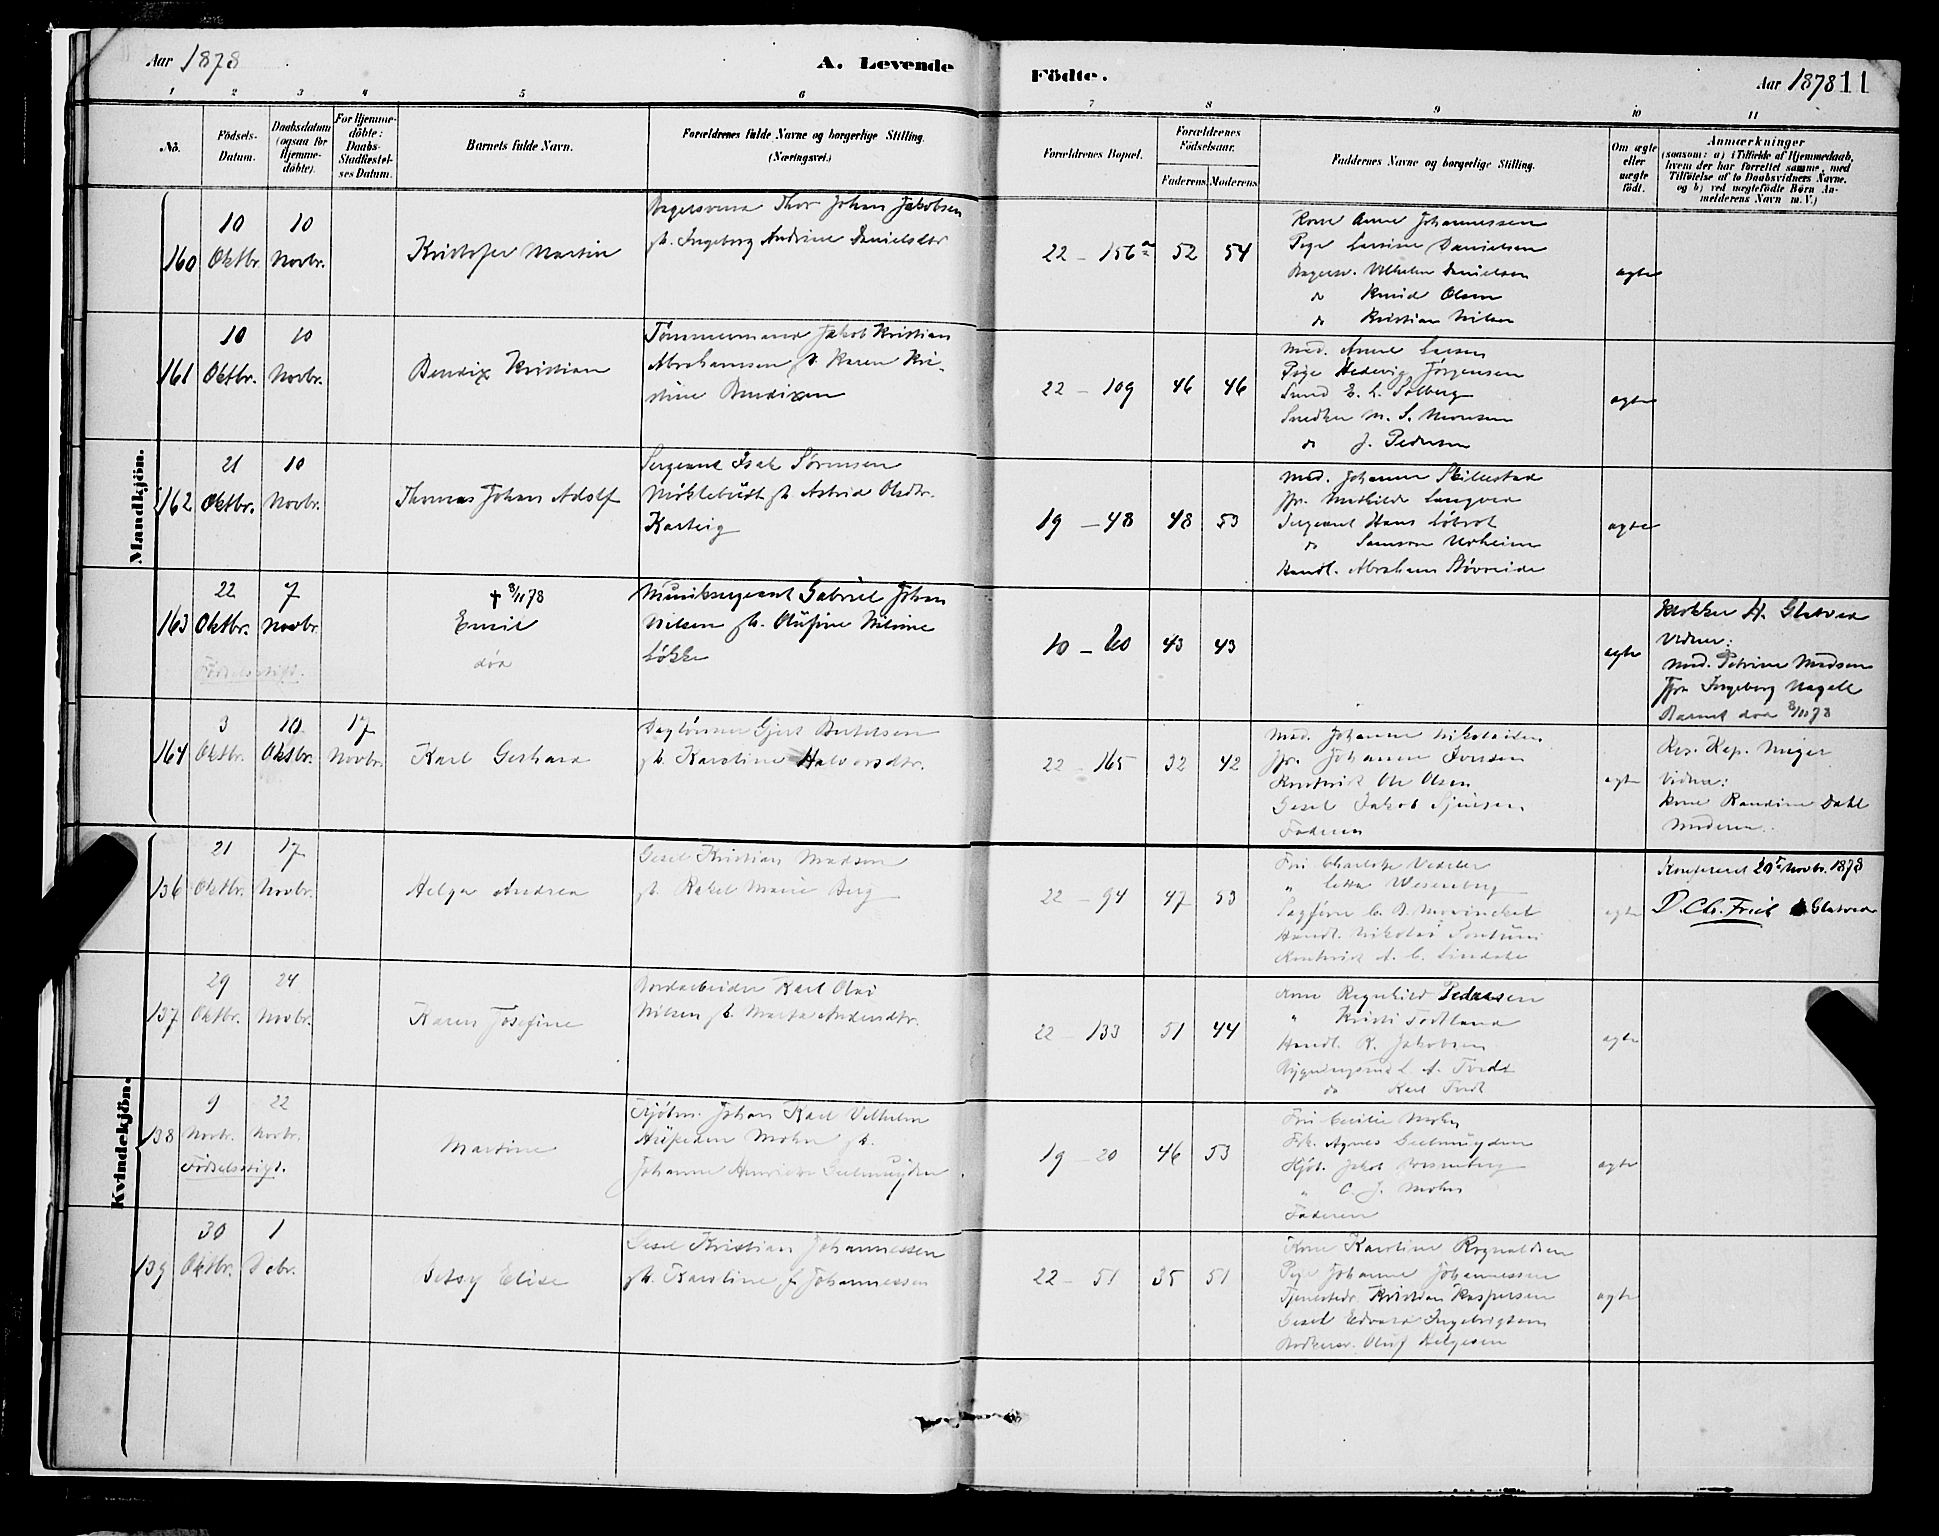 Aar 1878
A. Levende
Födte.
Aar 1878 11
1 2 3 4 5 6 7 8 9 10 11
No.
Födsels-
Datum.
Daabsdatum
(ogsaa for
Hjemme-
döbte).
For Hjemme-
döbte:
Daabs-
Stadfæstel-
ses Datum.
Barnets fulde Navn.
Forældrenes fulde Navne og borgerlige Stilling.
(Næringsvei.)
Forældrenes Bopæl.
Forældrenes
Födselsaar.
Faderens. Moderens.
Faddernes Navne og borgerlige Stilling.
Om ægte
eller
uægte
födt.
Anmærkninger
(saasom: a) i Tilfælde af Hjemmedaab,
hvem der har forrettet samme, med
Tilföielse af to Daabsvidners Navne,
og b) ved uægtefödte Börn An-
melderens Navn m. V.)
Mandkjön.
160
10
Oktbr.
10
Novbr.
Kristofer Martin
Bagersvend Thor Johan Jakobsen
gb. Ingeborg Andrine Danielsdtr
22 - 156a
52
54
Kone Anne Johannessen
Pige Lavine Danielsen
Bagersv. Vilhelm Danielsen
do Knud Olsen
do Kristian Nilsen
ægte
161
10
Oktbr.
10
Novbr.
Bendix Kristian
Tømmermand Jakob Kristian
Abrahamsen gb. Karen Kri-
stine Bendixen
22 - 109
46
46
Mad. Anne Larsen
Pige Hedevig Jørgensen
Smed E. L. Solberg
Snedker M. S. Monsen
do J. Pedersen
ægte
162
21
Oktbr.
10
Novbr.
Thomas Johan Adolf
Sergeant Isak Sørensen
Myklebust gb. Astrid Olsdtr.
19 - 48
48
53
Mad. Johanne Skillestad
Jfr. Mathilde Langved
Sergeant Hans
do Samson Urheim
Handl. Abraham Støvreide
ægte
163
22
Oktbr.
7
Novbr
Fødselsstift.
† 8/11 78
Emil
død
Musiksergeant Gabriel Johan
Nilsen gb. Olufine Nilsine
Løkke
10 - 60
43
43
ægte
Klokker H. Glatved
Vidner:
Mad. Petrine Madsen
Jfr. Ingeborg Nagell
Barnet død 8/11 78
164
3
Oktbr.
10
Oktbr.
17
Novbr.
Karl Gerhard
Daglønner Gjert Bertelsen
gb. Karoline Halvorsdtr.
22 - 165
32
42
Mad. Johanne Nikolaisen
Jfr. Johanne Iversen
Kontorist Ole Olsen
Gesel Jakob
Faderen
ægte
Res. Kap. Meyer
Vidner:
Kone Randine Dahl
Moderen.
Kvindekjön.
136
21
Oktbr.
17
Novbr.
Helga Andrea
Gesel Kristian Madsen
gb. Rakel Marie Berg
22 - 94
47
53
Fru Charlotte Vedeler
" Wesenberg
Sagfører C. B. Mowinckel
Handl. Nikolai
Kontorist A. C. Lindahl
ægte
Konfereret 20de Novbr. 1878
D. Chr. Friele Glatved
137
29
Oktbr.
24
Novbr.
Karen Josefine
Jordarbeider Karl Olai
Nilsen gb. Marta Andersdtr.
22 - 133
51
44
Kone Ragnhild Pedersen
" Kristi Todland
Handl. K. Jakobsen
Bygningssnd. L. A. Tvedt
do Karl Tvedt
ægte
138
9
Novbr.
22
Novbr.
Fødselsstift.
Martine
Kjøbm. Johan Karl Vilhelm
Mohn gb.
Johanne Henriette Geelmuyden
19 - 20
46
53
Fru Cecilie Mohn
Frk. Agnes Geelmuyden
Kjøb. Jakob Wesenberg
" C. J. Mohn
Faderen
ægte
139
30
Oktbr.
1
Debr.
Betsy Elise
Gesel Kristian Johannessen
gb. Karoline f. Johannessen
22 - 51
35
51
Kone Karoline Rognaldsen
Pige Johanne Johannessen
Tjenestedr. Kristian Kaspersen
Gesel Edvard Ingebrigtsen
Bødkersv. Oluf Helgesen
ægte